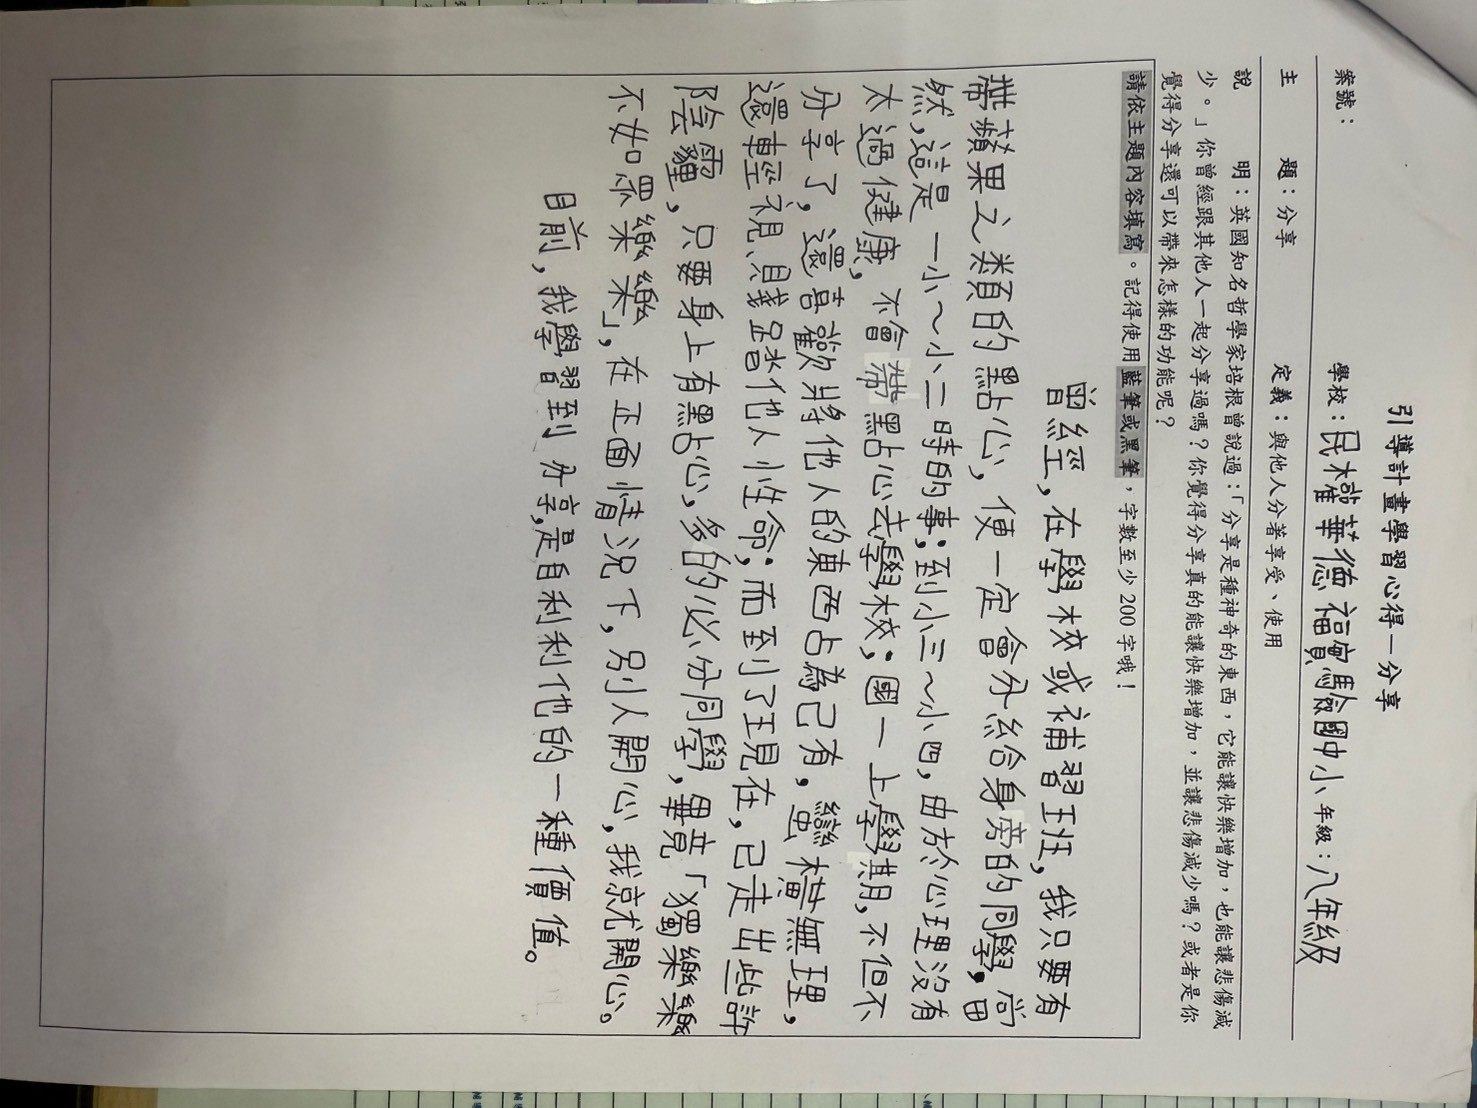 引導計畫學習心得－分享
案號： 學校：民權華德福實驗國中小 年級：八年級
主 題：分享 定義：與他人分著享受、使用
說 明：英國知名哲學家培根曾說過：「分享是種神奇的東西，它能讓快樂增加，也能讓悲傷減
少。」你曾經跟其他人一起分享過嗎？你覺得分享真的能讓快樂增加，並讓悲傷減少嗎？或者是你
覺得分享還可以帶來怎樣的功能呢？
請依主題內容填寫。記得使用藍筆或黑筆，字數至少 200 字哦！
曾經，在學校或補習班，我只要有
帶蘋果之類的點心，便一定會分給身旁的同學，當
然，這是一小～小二時的事；到小三～小四，由於心理沒有
太過健康，不會帶點心去學校；國一上學期，不但不
分享了，還喜歡將他人的東西占為己有，蠻橫無理，
還輕視、賤踏他人性命；而到了現在，已走出些許
陰霾，只要身上有點心，多的必分同學，畢竟「獨樂樂
不如眾樂樂」，在正面情況下，別人開心，我就開心。
目前，我學習到分享，是自利利他的一種價值。